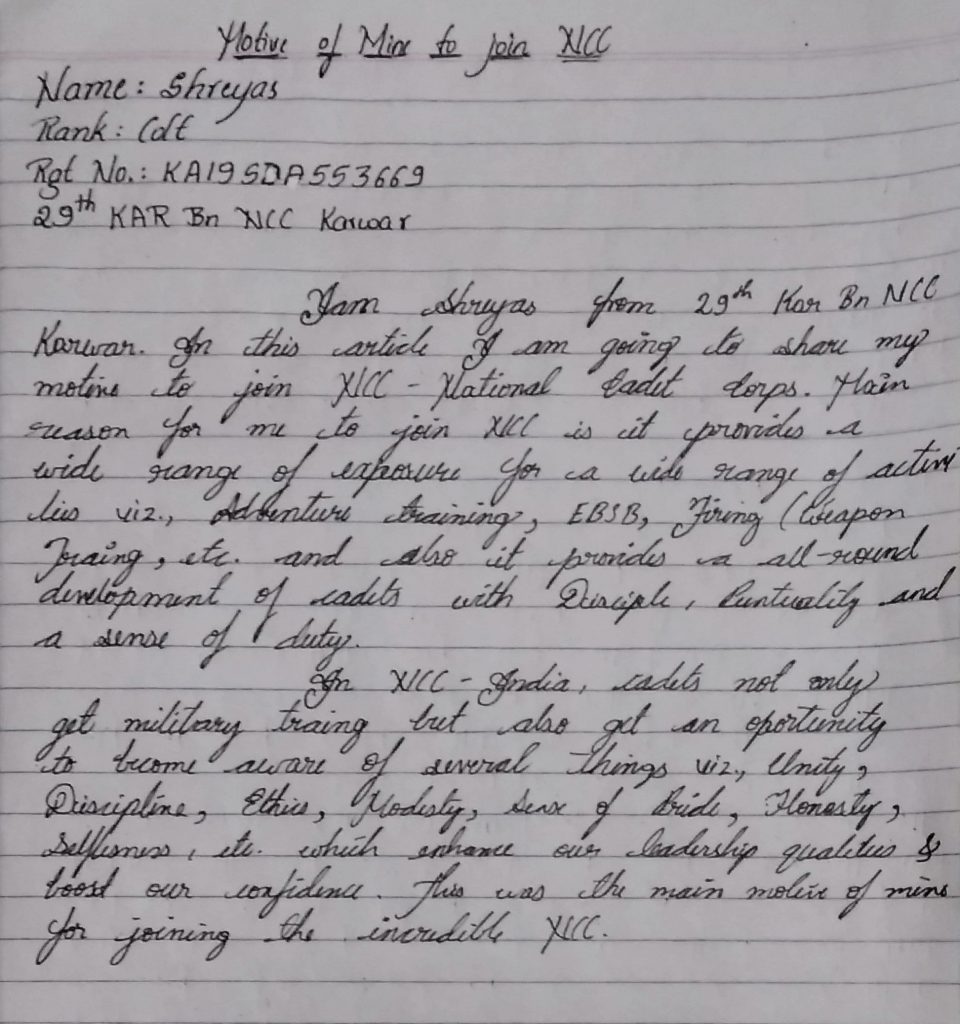 Motive of Mine to join NCC
Name: Shreyas
Rank: Cdt
Rgt No.: KA19SDA553669
29th KAR Bn NCC Karwar
I am Shreyas from 29th Kar Bn NCC
Karwar. In this article I am going to share my
motive to join NCC - National Cadet Corps. Main
reason for me to join NCC is it provides a
wide range of exposure for a wide range of activi
ties viz., Adventure training, EBSB, Firing (Weapon
Traing, etc. and also it provides a all-round
development of cadets with Disciple, Puntuality and
a sense of duty.
In NCC - India, cadets not only
get military traing but also get an oportunity
to become aware of several things viz., Unity,
Discipline, Ethics, Modesty, Sense of Pride, Honesty,
Selflesness, etc. which enhance our leadership qualities &
boost our confidence. This was the main motive of mine
for joining the incredible NCC.